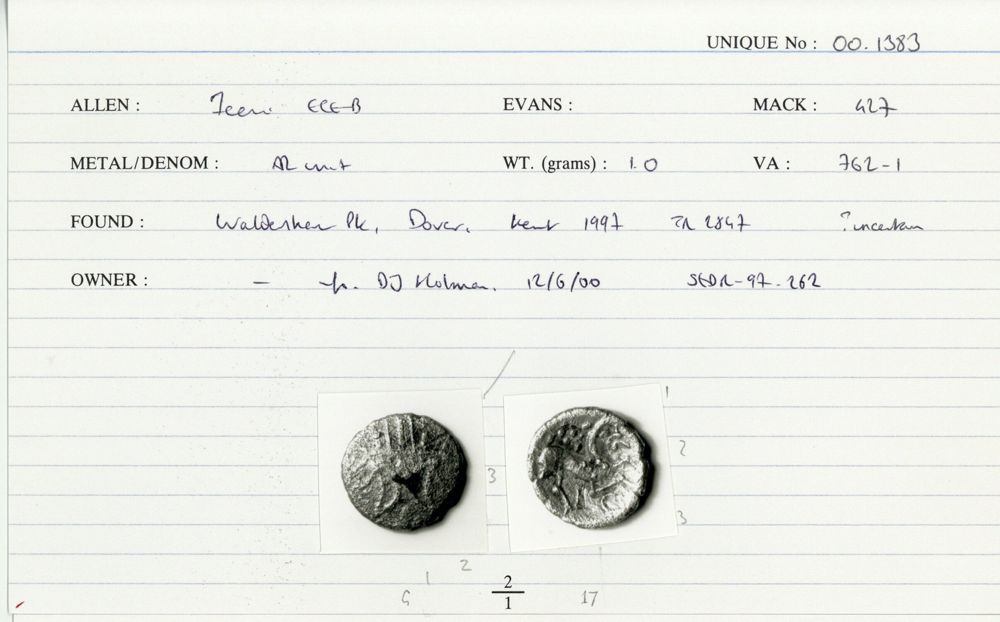 UNIQUE No : 00.1383
ALLEN : Iceni ECE-B EVANS : MACK : 427
METAL/DENOM : AR unit WT. (grams) : 1.0 VA : 762-1
FOUND : Waldershare Pk, Dover, Kent 1997 TR 2847 ? uncertain
OWNER : - DJ Holman. 12/6/00 SEDR-97-262
1
2
3
3
2
1
G 2/1 17